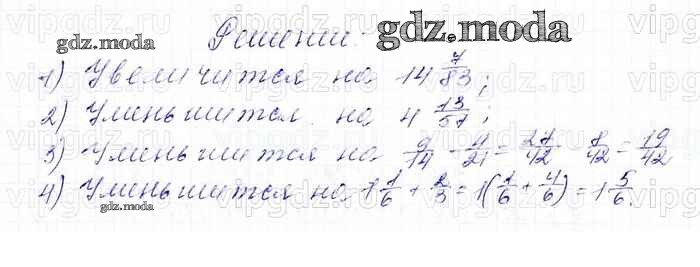 Решение:
1) Увеличится на 14 7/83;
2) Уменьшится на 4 13/57;
3) Уменьшится на 9/14 - 4/21 = 27/42 - 8/42 = 19/42
4) Уменьшится на 1 1/6 + 2/3 = 1(1/6 + 4/6) = 1 5/6.
gdz.moda
gdz.moda
gdz.moda
vipgdz.ru